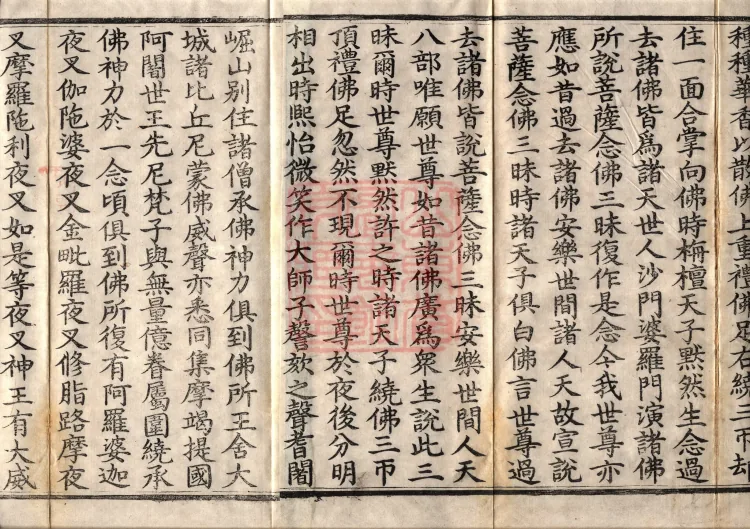 種種華香以散佛上重禮佛足右繞三帀却
住一面合掌向佛時栴檀天子默然生念過
去諸佛皆爲諸天世人沙門婆羅門演諸佛
所說菩薩念佛三昧復作是念今我世尊亦
應如昔過去諸佛安樂世間諸人天故宣說
菩薩念佛三昧時諸天子俱白佛言世尊過
去諸佛皆說菩薩念佛三昧安樂世間人天
八部唯願世尊如昔諸佛廣爲衆生說此三
昧爾時世尊默然許之時諸天子繞佛三帀
頂禮佛足忽然不現爾時世尊於夜後分明
相出時熙怡微笑作大師子謦欬之聲耆闍
崛山別住諸僧承佛神力俱到佛所王舍大
城諸比丘尼蒙佛威聲亦悉同集摩竭提國
阿闍世王先尼梵子與無量億眷屬圍繞承
佛神力於一念頃俱到佛所復有阿羅婆迦
夜叉伽陁婆夜叉金毗羅夜叉修脂路摩夜
叉摩羅陁利夜叉如是等夜叉神王有大威